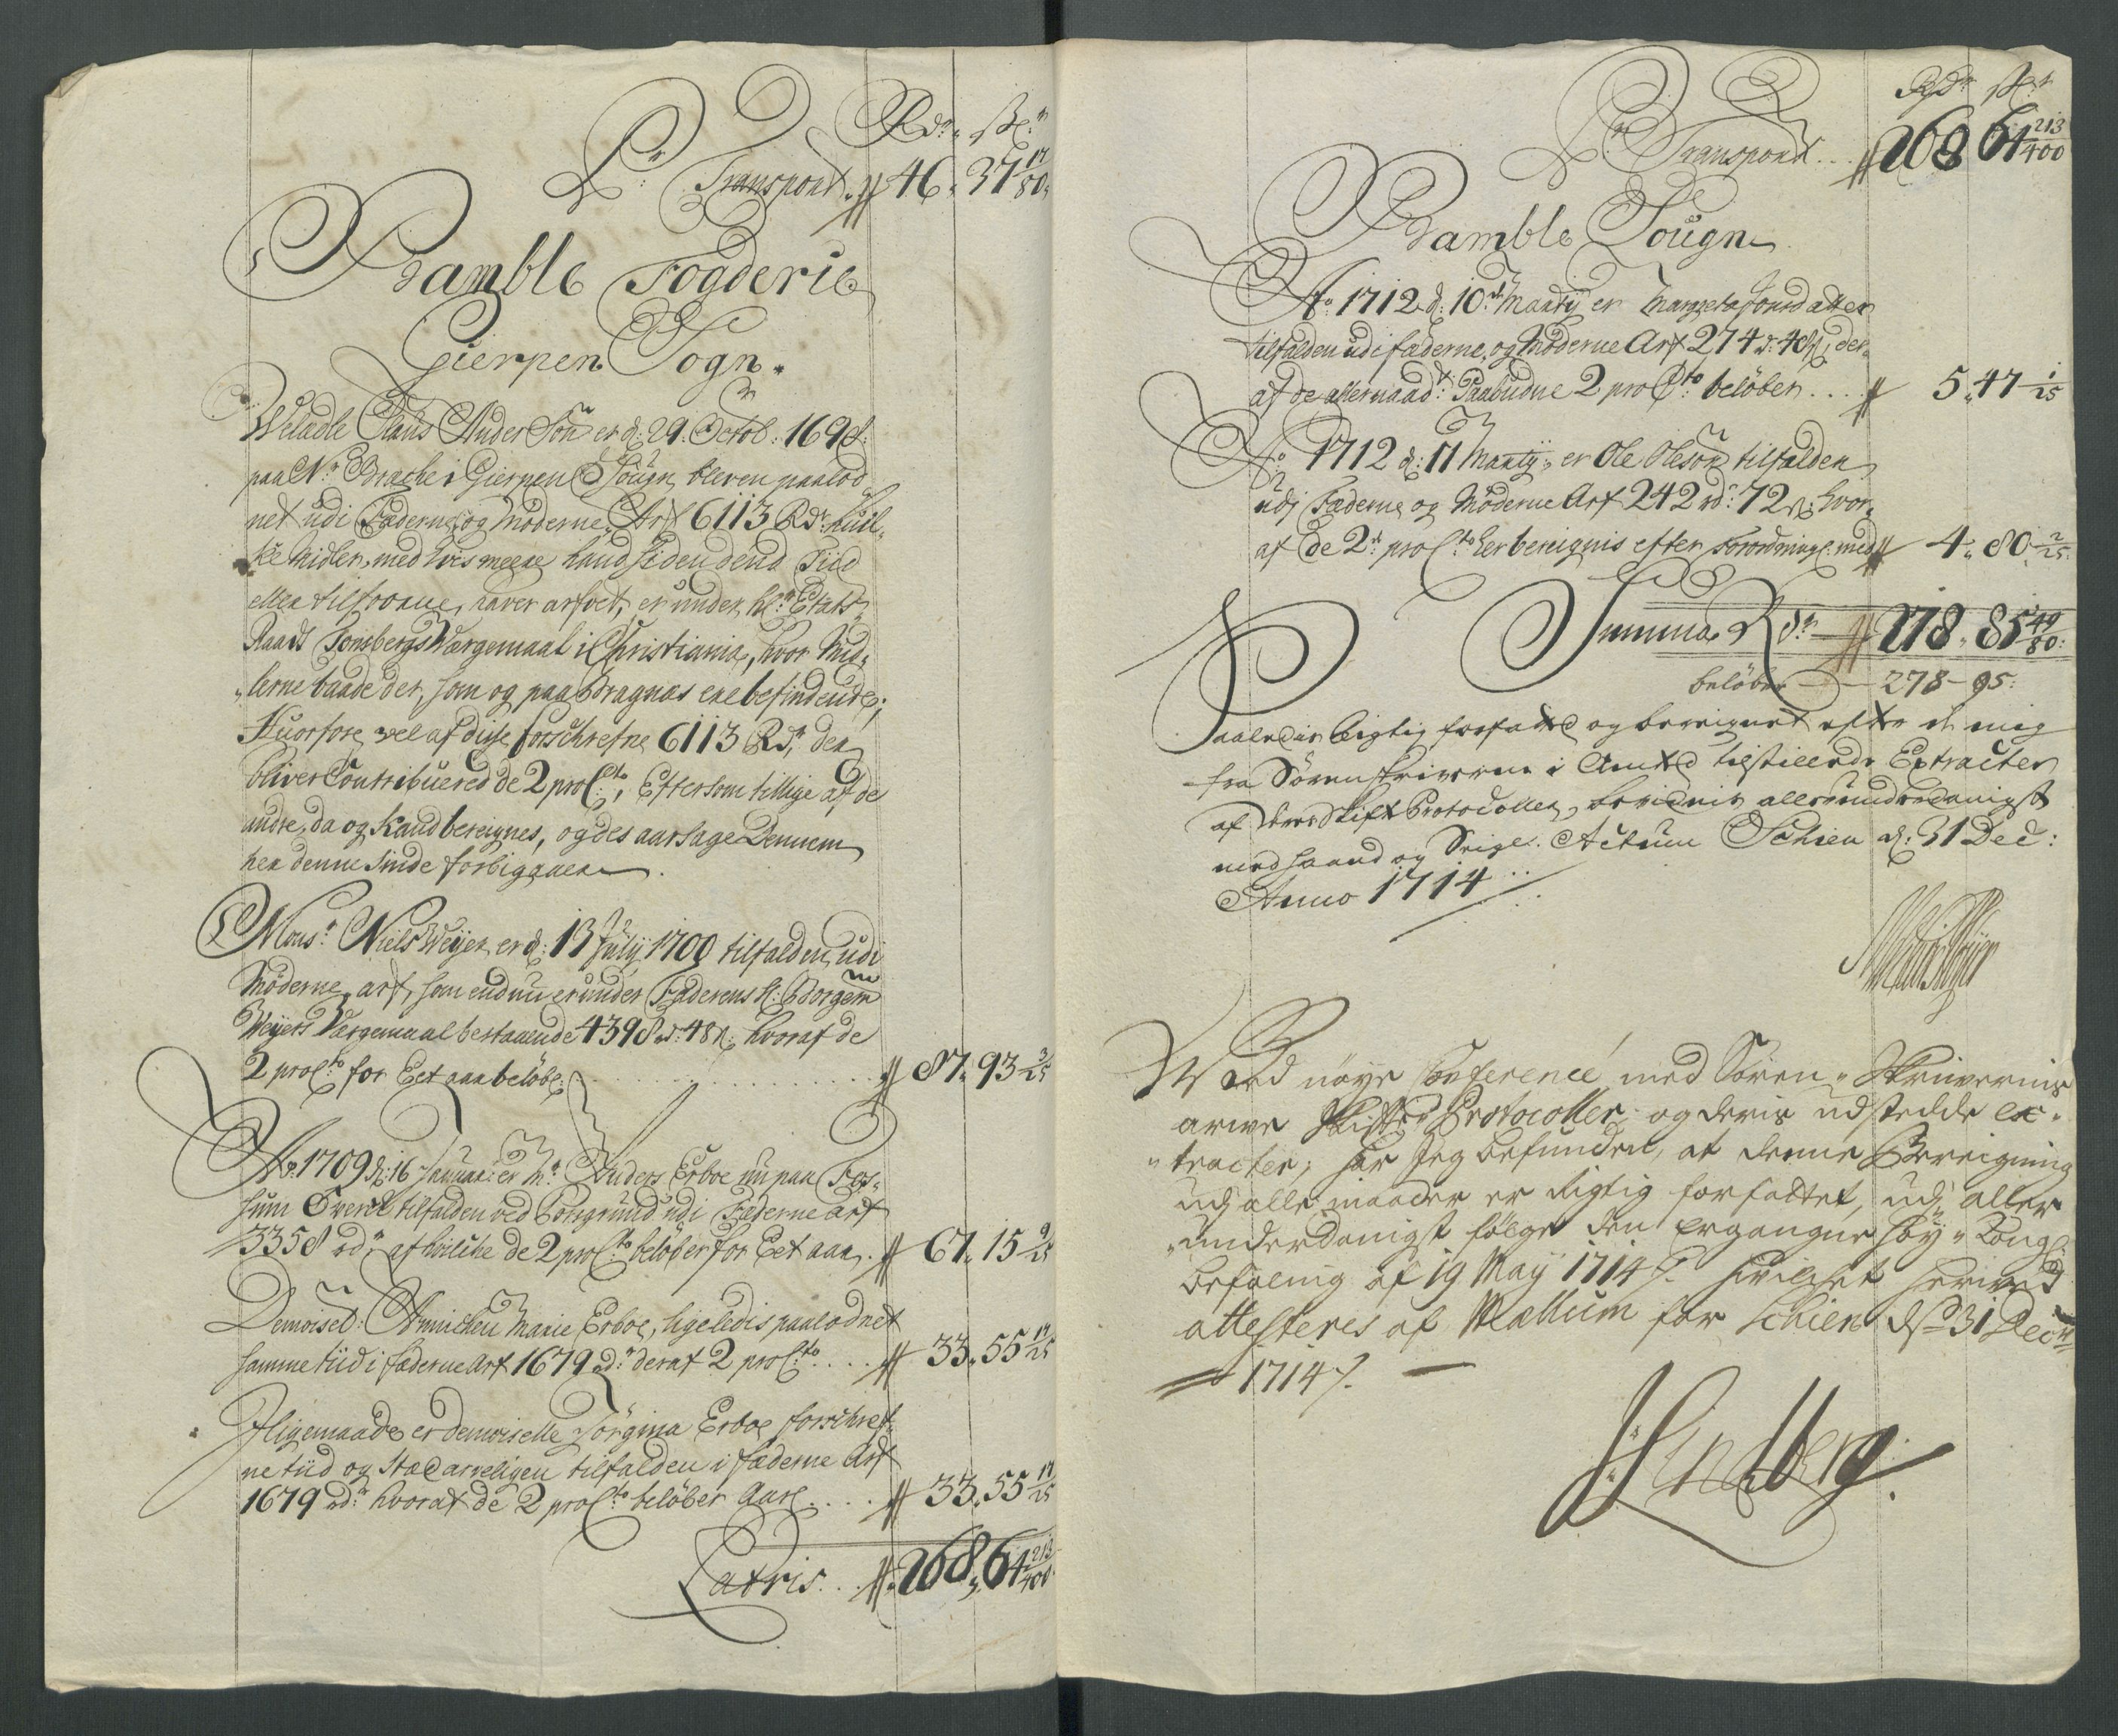 Rdr. sk:
Pr: Transport. # 46. 37 17/80.
Bamble Fogderie
Gierpen Sogn.
Weladle Claus AnderSøn er d: 29. Octob: 1698.
paa Nr. Brache i Gierpen Sougn bleven paalod
net udi Fæderne og Møderne Arf 6113 Rdr: huil-
ke Midler, med hvis meere hand siden dend Tiid
eller tilforne, haver arfvet, er under hl: Etats
Raads Tonsbergs Wærgemaal i Christiania, hvor Mid-
lerne baade der, som og paa Bragnæs ere befindende;
Huorfore vel af disse forschrefne 6113 Rdr: der
bliver Contribuered de 2 pro Cto:, Eftersom tillige af de
andre, da og Kand bereignes, og des aarsage Dennem
her denne sinde forbigaaer.
Monsr: Niels Weyer, er d: 13 July 1700 tilfalden udi
Møderne arf, som endnu er under Faderens H: Borgem
Weyers Værgemaal bestaaende 4398 rd: 48 s: hvoraf de
2 pro Cto: for Eet aar beløbe: . . . # 87. 93 3/25
Ao. 1709 d: 16 Januar: er hr: Anders Erboe nu paa Fos-
sum Øverst tilfalden ved Porsgrund udi Fæderne arf
3358 rdr: af hvilche de 2 pro Cto: beløber for Eet aar. # 67. 15 9/25
Demoisel: Annichen Marie Erboe, ligeledis paalodnet
samme tiid i fæderne Arf 1679 rdr: deraf 2 pro Cto: . . . # 33. 55 17/25
J ligemaade er demoiselle Jørgina Erboe forschref-
ne tiid og stæd arveligen tilfalden i fæderne Arf
1679 rdr: hvoraf de 2 pro Cto: beløber Aarl. . . . # 33. 55 17/25
Latris. . . # 268. 64 213/400
Rdr: sk:
Pr: Transport. . . # 268 64 213/400
Bamble Sougn
Ao: 1712 d: 10de Marty er Margeta Jonsdatter
tilfalden udi fæderne, og Møderne Arf 274 rd: 48 s, der-
af de allernaad: Paabudne 2 pro Cto: beløber. . . . # 5. 47 1/25
Ao: 1712 d: 11 Marty. er Ole Olesøn tilfalden
udi Fæderne og Møderne Arf 242 rd: 72 s: hvor-
af de 2 pro Cto: her bereignis efter Forordning: med # 4. 80 2/25.
Summa Rdr: # 278. 85 49/80:
beløber — 278 - 95:
Saaledis Rigtig forfatted og bereignet efter de mig
fra Sorenskriverne i Amted tilstillede Extracter
af deres Skifte Protocoller, bevidnis allerunderdanigst
med haand og Seigl. Actum Schien d: 31 Dec:
Anno 1714
Weyer
Wed nøye Conference med Soren-Skrivernis
arve Skifte Protocoller og deris udstedde ex-
tracter, har Jeg befunden, at denne Bereigning
udj alle maader er Rigtig forfattet, udj aller
underdanigst følge den ergangne Høy Kongl:
befaling af 19 May 1714. Hvilchet herved
attesteres af Mællum for Schien ds 31 Decbr
1714.
H Lindberg.